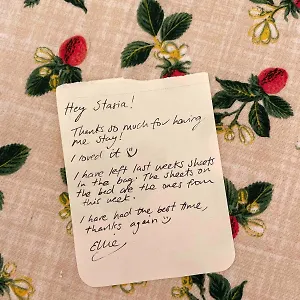 Hey Stasia!
Thanks so much for having
me stay!
I loved it ☺
I have left last weeks sheets
in the bag. The sheets on
the bed are the ones from
this week.
I have had the best time,
thanks again ☺
Ellie